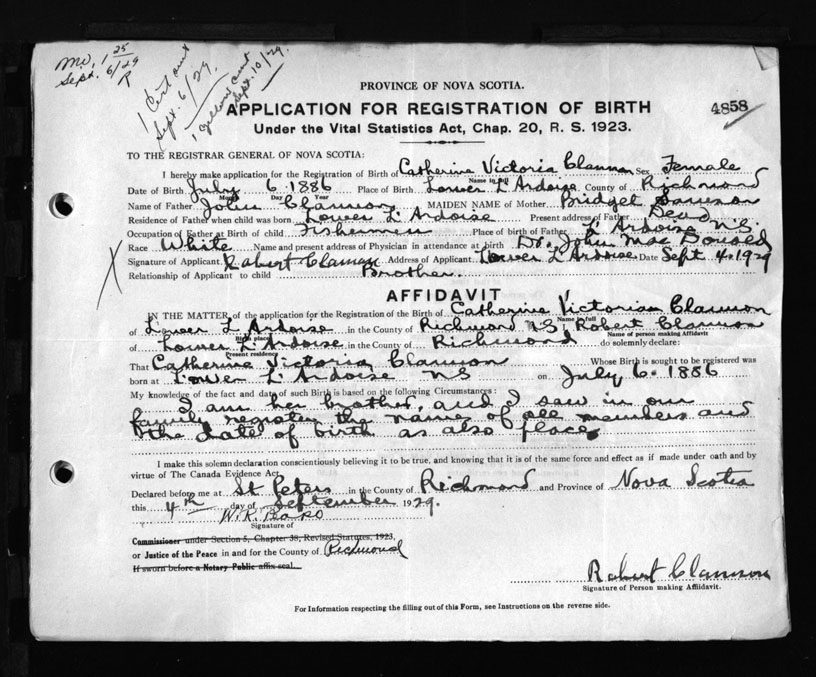 Mo. 1 25
Sept. 6/29
R
1 Cert sent
Sept. 6/29
1 sent
Sept. 10/29
PROVINCE OF NOVA SCOTIA.
APPLICATION FOR REGISTRATION OF BIRTH
4858
Under the Vital Statistics Act, Chap. 20, R. S. 1923.
TO THE REGISTRAR GENERAL OF NOVA SCOTIA:
I hereby make application for the Registration of Birth of Catherine Victoria Clannon Sex Female
Name in full
Date of Birth July 6 1886 Place of Birth Lower L'Ardoise County of Richmond
Month Day Year
Name of Father John Clannon MAIDEN NAME of Mother Bridget Samson
Residence of Father when child was born Lower L'Ardoise Present address of Father Dead
Occupation of Father at Birth of child Fishermen Place of birth of Father L'Ardoise N.S.
Race White Name and present address of Physician in attendance at birth Dr. John Mac Donald
Signature of Applicant Robert Clannon Address of Applicant Lower L'Ardoise Date Sept 4, 1929
Relationship of Applicant to child Brother.
AFFIDAVIT
IN THE MATTER of the application for the Registration of the Birth of Catherine Victoria Clannon
Name in full
of Lower L'Ardoise in the County of Richmond N.S, Robert Clannon
Birth place Name of person making Affidavit
of Lower L'Ardoise in the County of Richmond do solemnly declare:
Present residence
That Catherine Victoria Clannon Whose Birth is sought to be registered was
born at Lower L'Ardoise N S on July 6. 1886
My knowledge of the fact and date of such Birth is based on the following Circumstances:
I am her brother, and I saw in our
family register the name of all members and
the date of birth as also place
I make this solemn declaration conscientiously believing it to be true, and knowing that it is of the same force and effect as if made under oath and by
virtue of The Canada Evidence Act.
Declared before me at St Peters in the County of Richmond and Province of Nova Scotia
this 4th day of September 1929.
Signature of
Commissioner under Section 5, Chapter 38, Revised Statutes, 1923,
or Justice of the Peace in and for the County of Richmond
If sworn before a Notary Public affix seal.
Robert Clannon
Signature of Person making Affidavit.
For Information respecting the filling out of this Form, see Instructions on the reverse side.